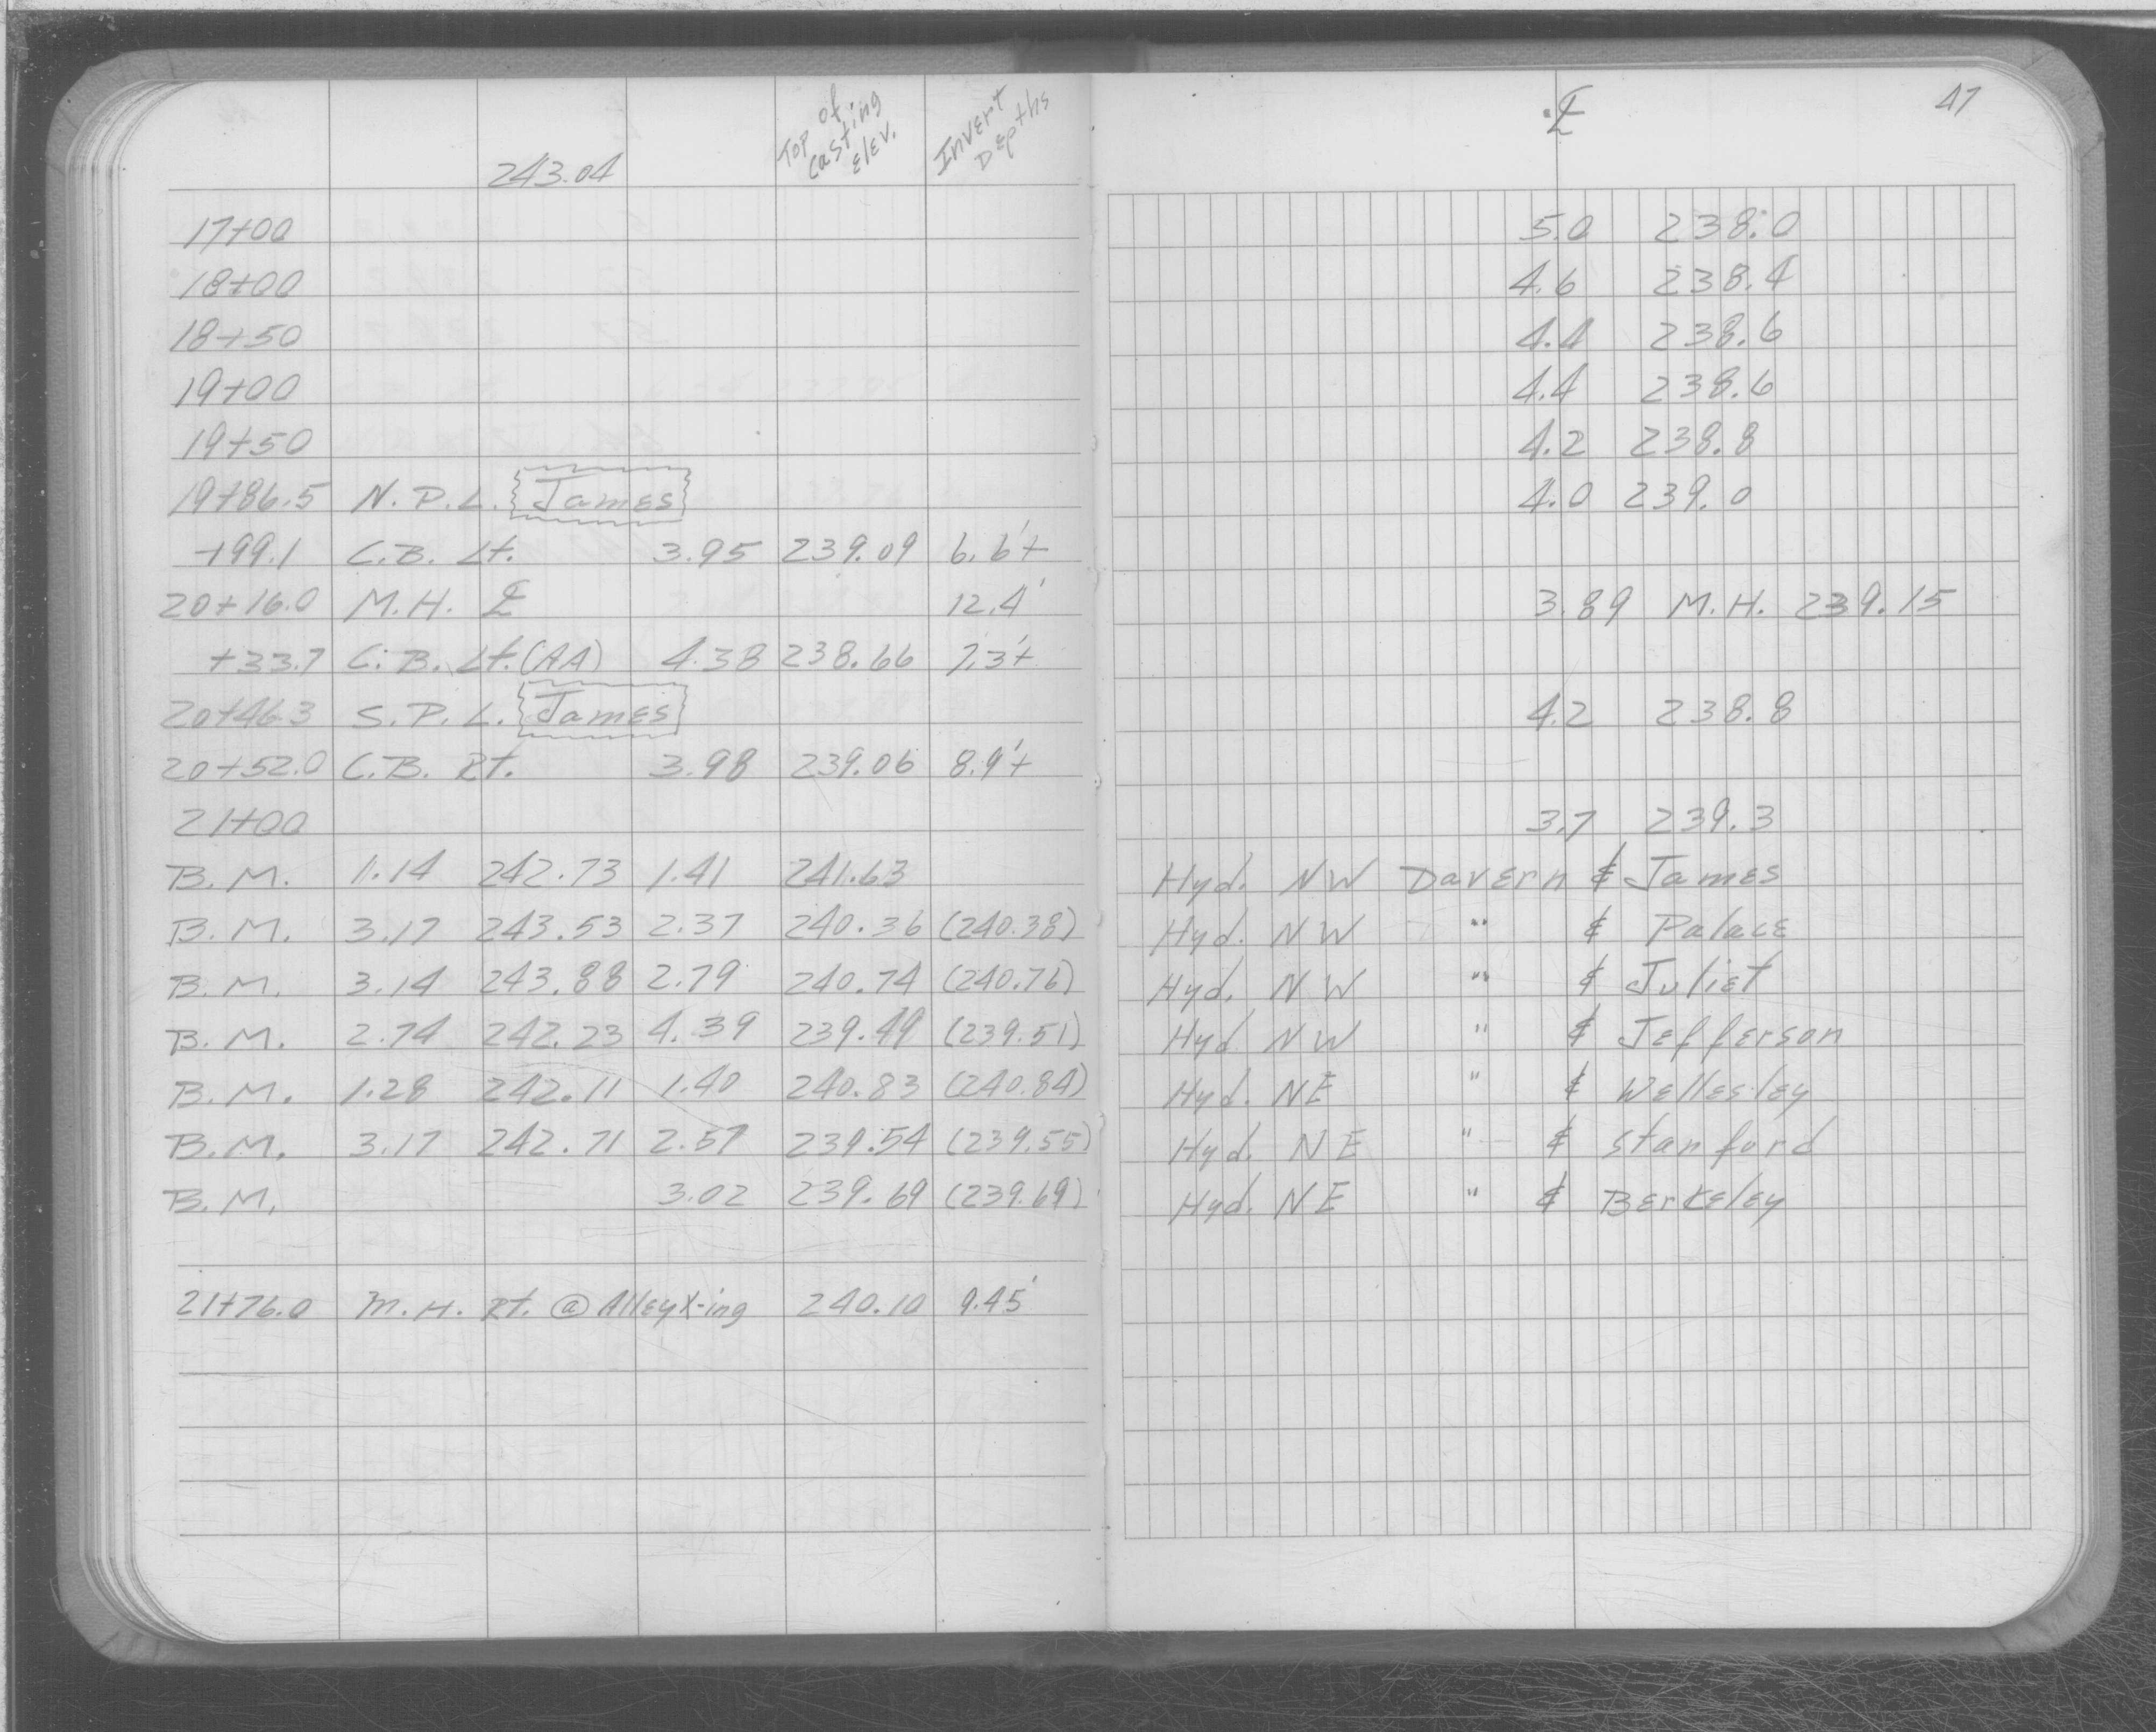 Top of Casting Elev. Invert Depths ℄ 47
243.04
17+00 5.0 238.0
18+00 4.6 238.4
18+50 4.4 238.6
19+00 4.4 238.6
19+50 4.2 238.8
19+86.5 N.P.L. James 4.0 239.0
+99.1 C.B. Lt. 3.95 239.09 6.6'+
20+16.0 M.H. ℄ 12.4' 3.89 M.H. 239.15
+33.7 C.B. Lt.(AA) 4.38 238.66 7.3'+
20+46.3 S.P.L. James 4.2 238.8
20+52.0 C.B. Rt. 3.98 239.06 8.9'+
21+00 3.7 239.3
B.M. 1.14 242.73 1.41 241.63 Hyd. NW Davern & James
B.M. 3.17 243.53 2.37 240.36 (240.38) Hyd. NW " & Palace
B.M. 3.14 243.88 2.79 240.74 (240.76) Hyd. NW " & Juliet
B.M. 2.74 242.23 4.39 239.49 (239.51) Hyd. NW " & Jefferson
B.M. 1.28 242.11 1.40 240.83 (240.84) Hyd. NE " & Wellesley
B.M. 3.17 242.71 2.57 239.54 (239.55) Hyd. NE " & Stanford
B.M. 3.02 239.69 (239.69) Hyd. NE " & Berkeley
21+76.0 M.H. Rt. @ Alley X-ing 240.10 9.45'